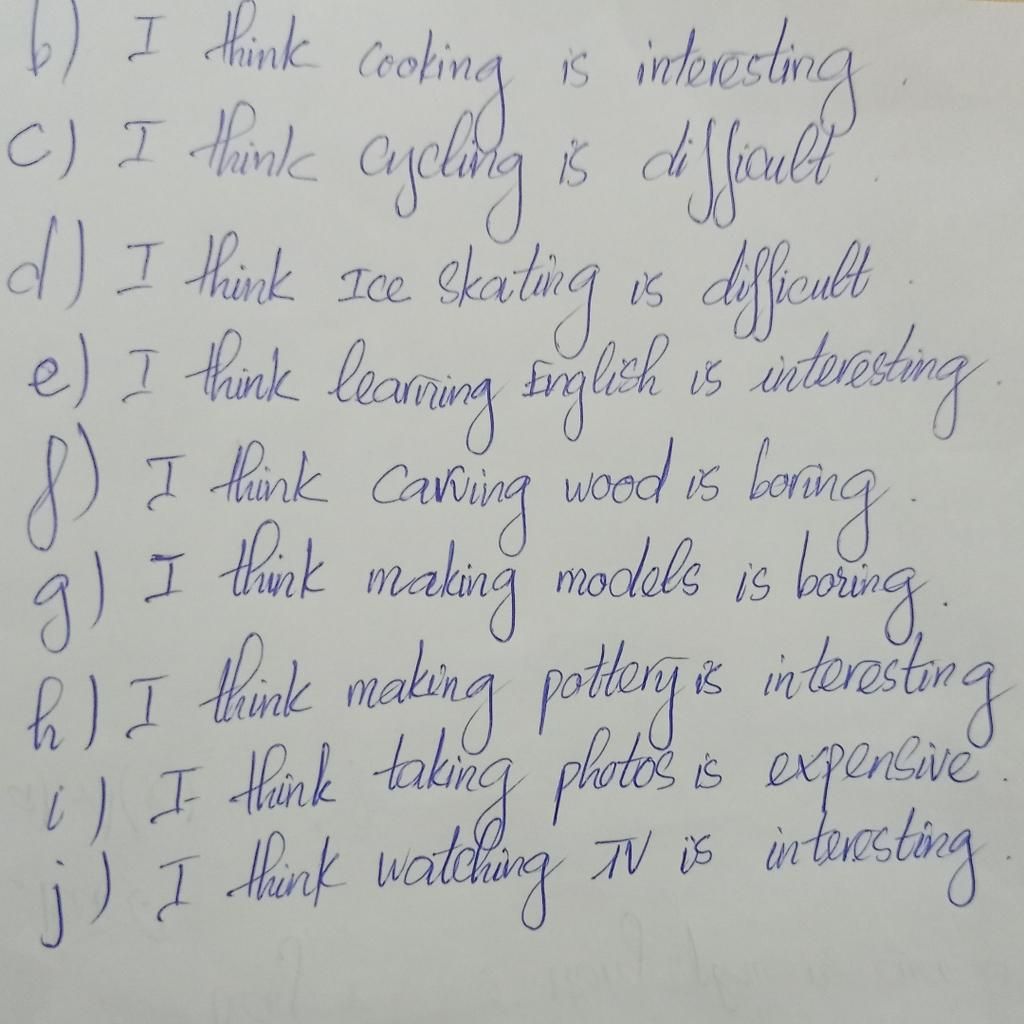 b) I think cooking is interesting.
c) I think cycling is difficult.
d) I think Ice skating is difficult.
e) I think learning English is interesting.
f) I think carving wood is boring.
g) I think making models is boring.
h) I think making pottery is interesting
i) I think taking photos is expensive.
j) I think watching TV is interesting.